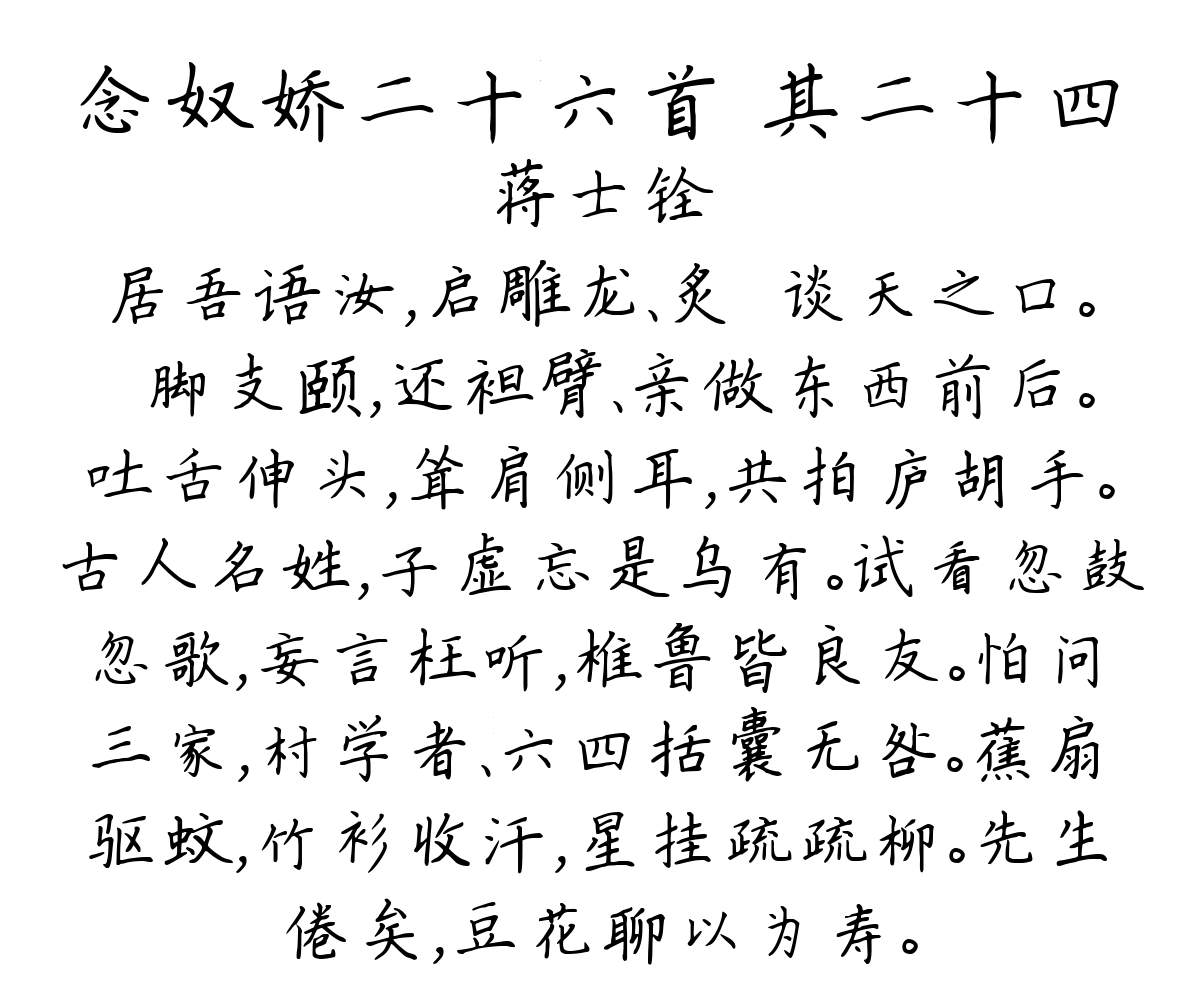 念奴娇二十六首 其二十四
蒋士铨
居吾语汝,启雕龙、炙 谈天之口。
脚支颐,还袒臂、亲做东西前后。
吐舌伸头,耸肩侧耳,共拍庐胡手。
古人名姓,子虚忘是乌有。试看忽鼓
忽歌,妄言枉听,椎鲁皆良友。怕问
三家,村学者、六四括囊无咎。蕉扇
驱蚊,竹衫收汗,星挂疏疏柳。先生
倦矣,豆花聊以为寿。